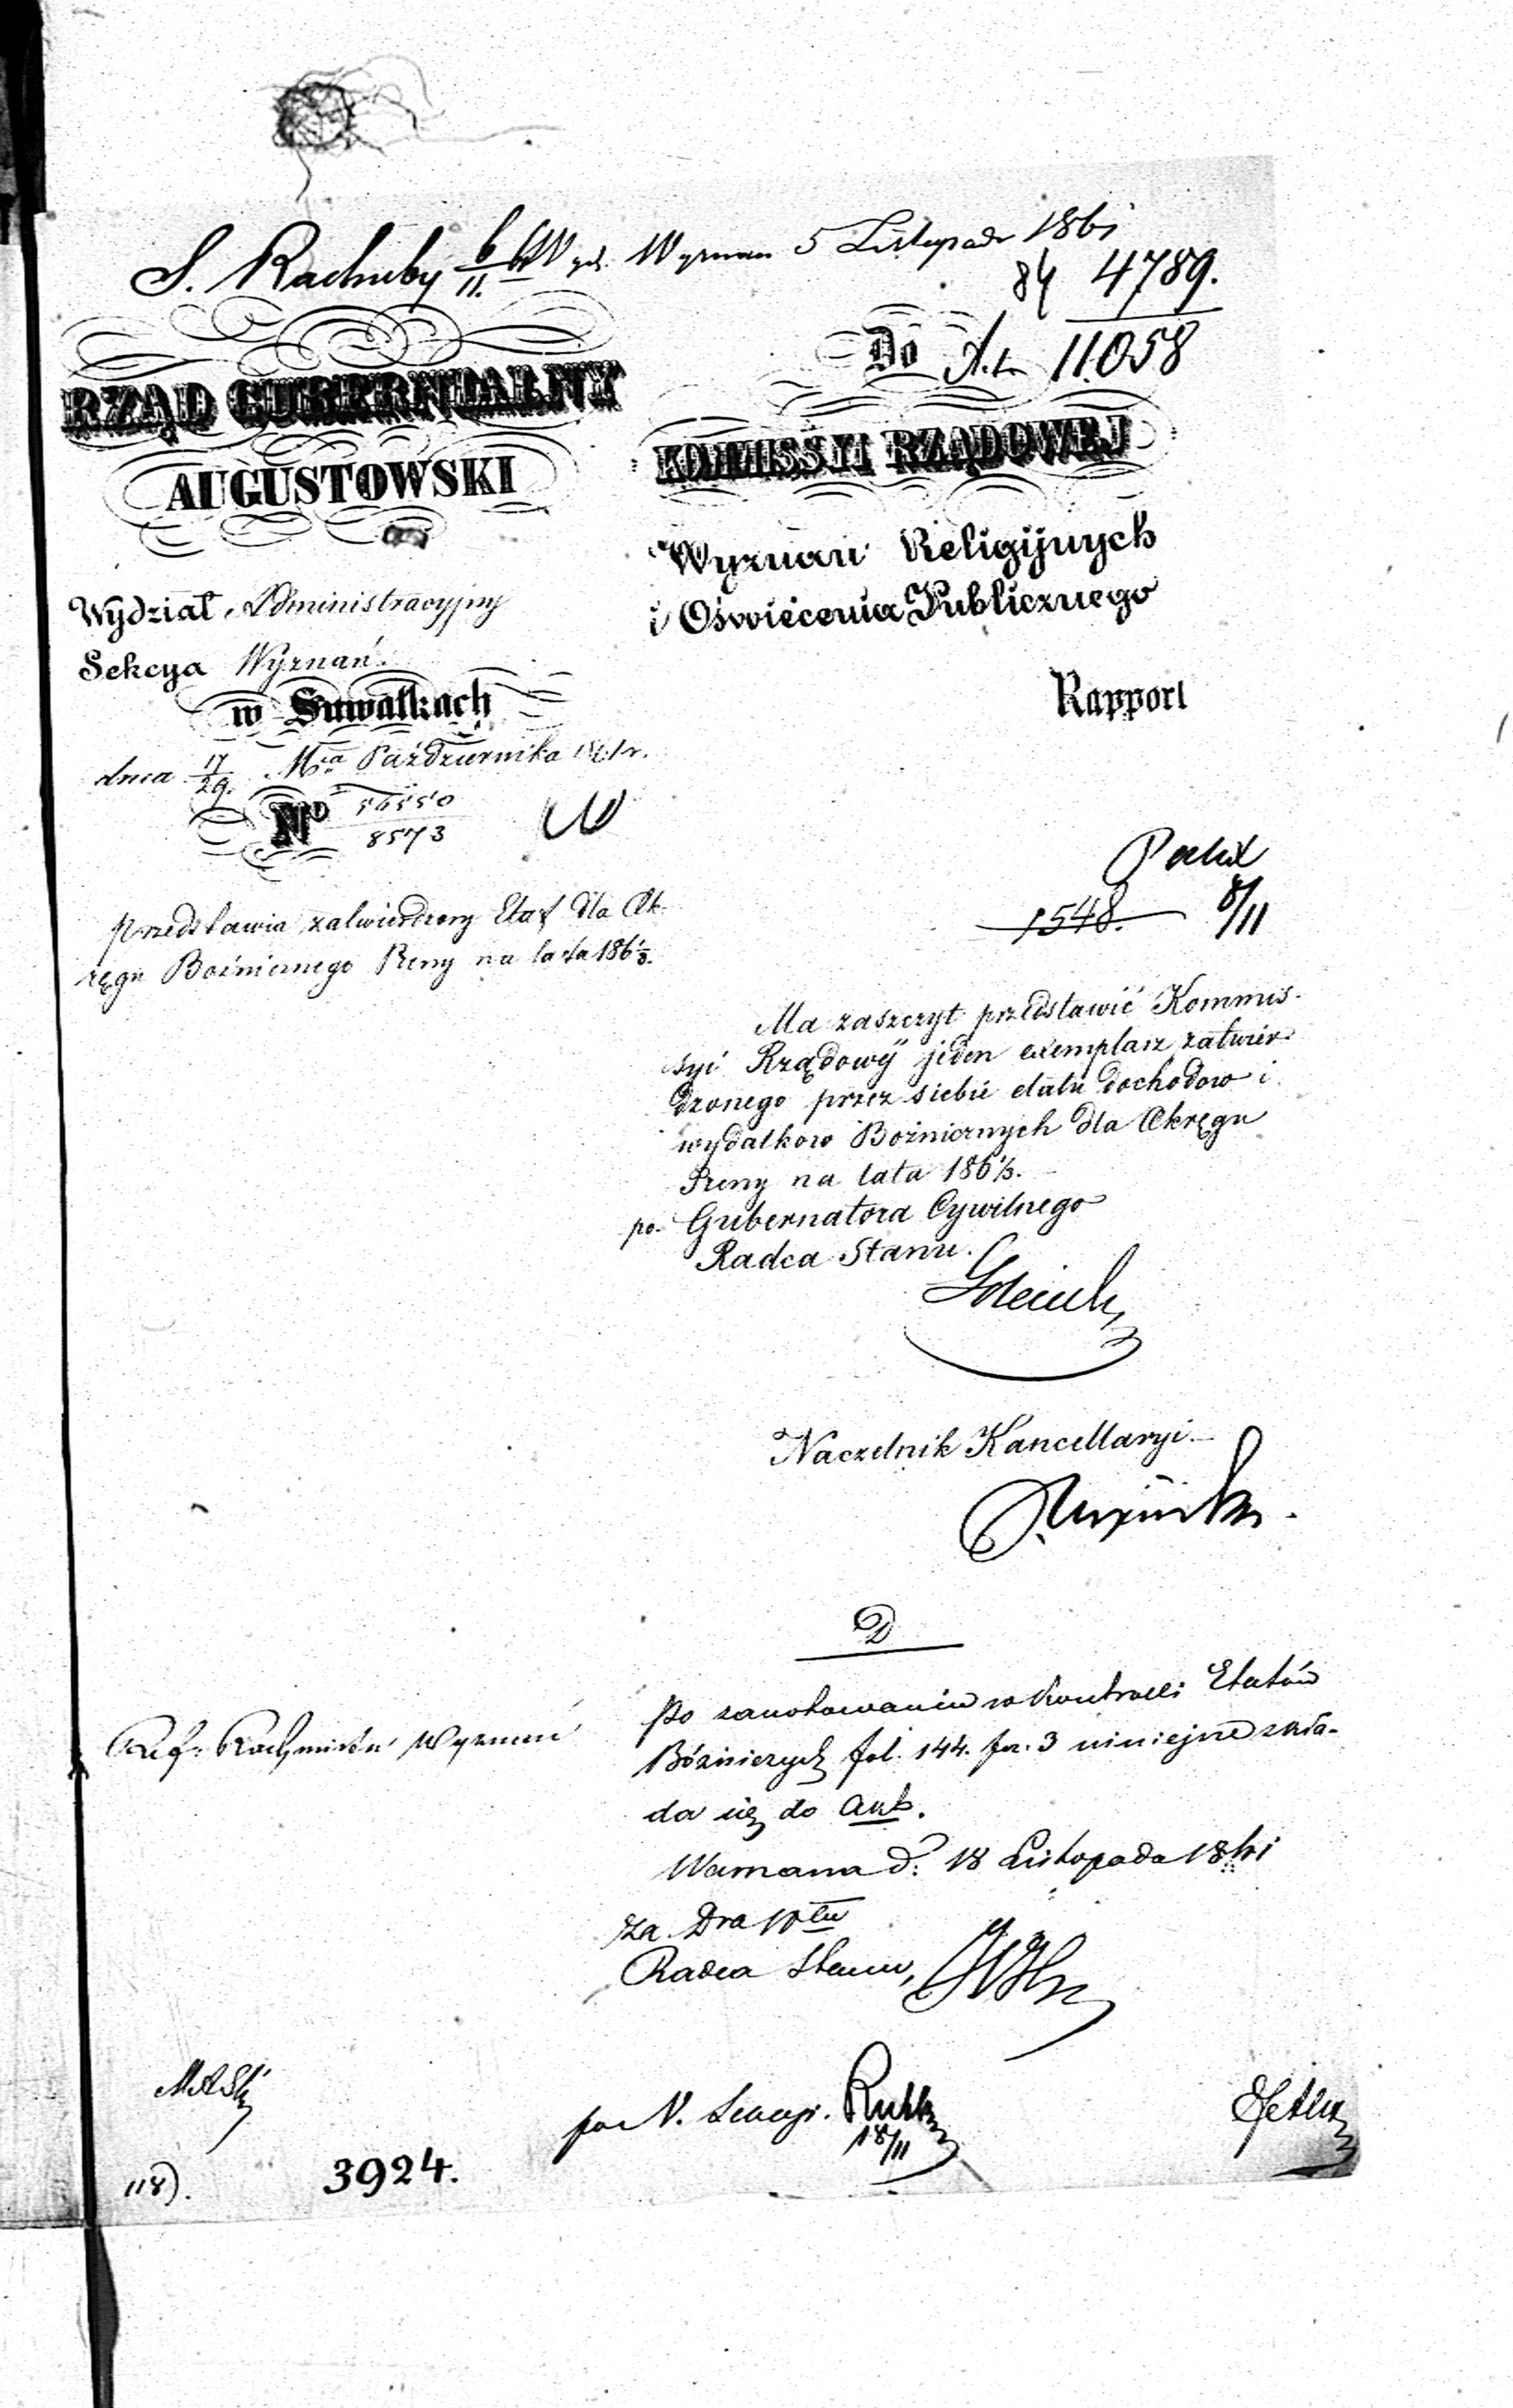 S. Rachuby 6/11. Wyznan 5 Listopada 1861
84 4789.
11058
Do
RZĄD GUBERNIALNY
AUGUSTOWSKI
KOMMISSYI RZĄDOWEJ
Wyznań Religijnych
i Oświecenia Publicznego
Wydział Administracyjny
Sekcya Wyznań.
w Suwałkach
Rapport
dnia 17/29. Mca Października 1861 r.
No 56550
8573
1548. 8/11
przedstawia zatwierdzony Etat dla Ok-
ręgu Bożnicznego Preny na lata 186 1/3.
Ma zaszczyt przedstawić Kommis-
syi Rządowej jeden exemplarz zatwier-
dzonego przez siebie etatu dochodow i
wydatkow Bożnicznych dla Okręgu
Preny na lata 186 1/3.
po. Gubernatora Cywilnego
Radca Stanu.
Naczelnik Kancellaryi.
D
Ref: Rachmistrz Wyznań
Po zanotowaniu w Kontrolli Etatów
Bóżniczych fol. 144. poz. 3 niniejsze skła-
da się do Akt.
Warszawa d. 18 Listopada 1861
za Dra
Radca Stanu,
18/11
118).
3924.